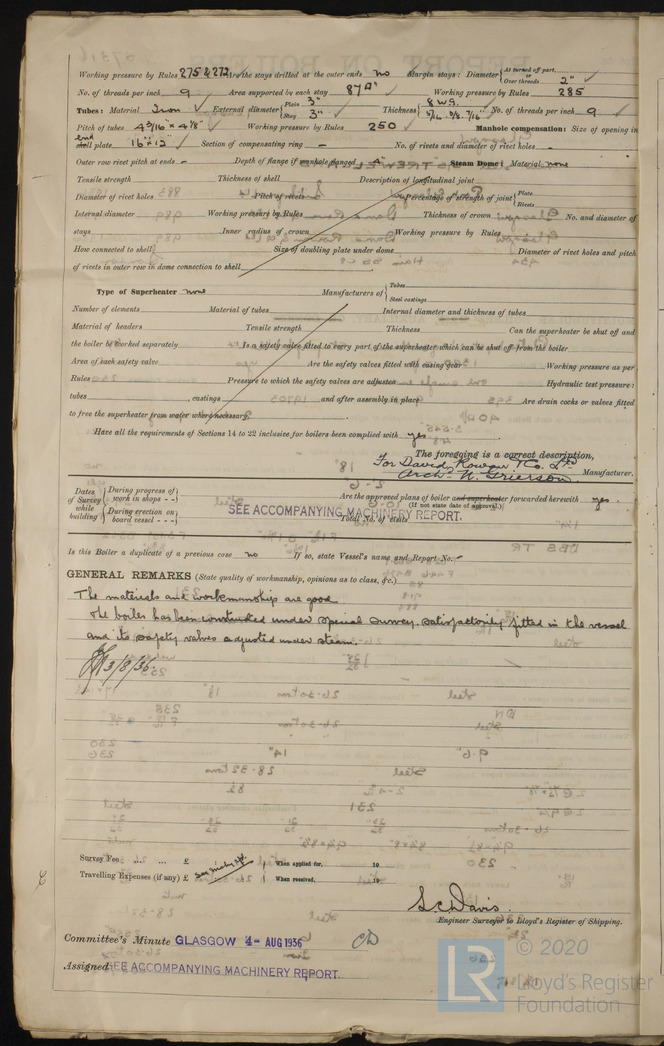 Working pressure by Rules 275 & 272 Are the stays drilled at the outer ends no Margin stays: Diameter { At turned off part, or Over threads 2"
No. of threads per inch 9 Area supported by each stay 87 □" Working pressure by Rules 285
Tubes: Material Iron External diameter { Plain 3" Stay 3" Thickness { 8 WG. 5/16 . 3/8 . 7/16" No. of threads per inch 9
Pitch of tubes 4 3/16" x 4 1/8" Working pressure by Rules 250 Manhole compensation: Size of opening in
end shell plate 16" x 12" Section of compensating ring - No. of rivets and diameter of rivet holes -
Outer row rivet pitch at ends - Depth of flange if manhole flanged 4" Steam Dome: Material none
Tensile strength Thickness of shell Description of longitudinal joint
Diameter of rivet holes Pitch of rivets Percentage of strength of joint { Plate Rivets
Internal diameter Working pressure by Rules Thickness of crown No. and diameter of
stays Inner radius of crown Working pressure by Rules
How connected to shell Size of doubling plate under dome Diameter of rivet holes and pitch
of rivets in outer row in dome connection to shell
Type of Superheater none Manufacturers of { Tubes Steel castings
Number of elements Material of tubes Internal diameter and thickness of tubes
Material of headers Tensile strength Thickness Can the superheater be shut off and
the boiler be worked separately Is a safety valve fitted to every part of the superheater which can be shut off from the boiler
Area of each safety valve Are the safety valves fitted with easing gear Working pressure as per
Rules Pressure to which the safety valves are adjusted Hydraulic test pressure:
tubes , castings and after assembly in place Are drain cocks or valves fitted
to free the superheater from water where necessary
Have all the requirements of Sections 14 to 22 inclusive for boilers been complied with yes
The foregoing is a correct description,
For David Rowan & Co. Ltd
Arch. N. Grierson Manufacturer.
Dates of Survey while building { During progress of work in shops - - { During erection on board vessel - - -
Are the approved plans of boiler and superheater forwarded herewith yes.
(If not state date of approval.)
SEE ACCOMPANYING MACHINERY REPORT.
Total No. of visits
Is this Boiler a duplicate of a previous case no If so, state Vessel's name and Report No. -
GENERAL REMARKS (State quality of workmanship, opinions as to class, &c.)
The materials and workmanship are good
The boiler has been constructed under special survey. satisfactorily fitted in the vessel
and its safety valves adjusted under steam.
3/8/36.
Survey Fee ... ... £ When applied for, 19
Travelling Expenses (if any) £ When received, 19
S.C. Davis.
Engineer Surveyor to Lloyd's Register of Shipping.
Committee's Minute GLASGOW 4 - AUG 1936
Assigned SEE ACCOMPANYING MACHINERY REPORT.
LR © 2020
Lloyd's Register
Foundation